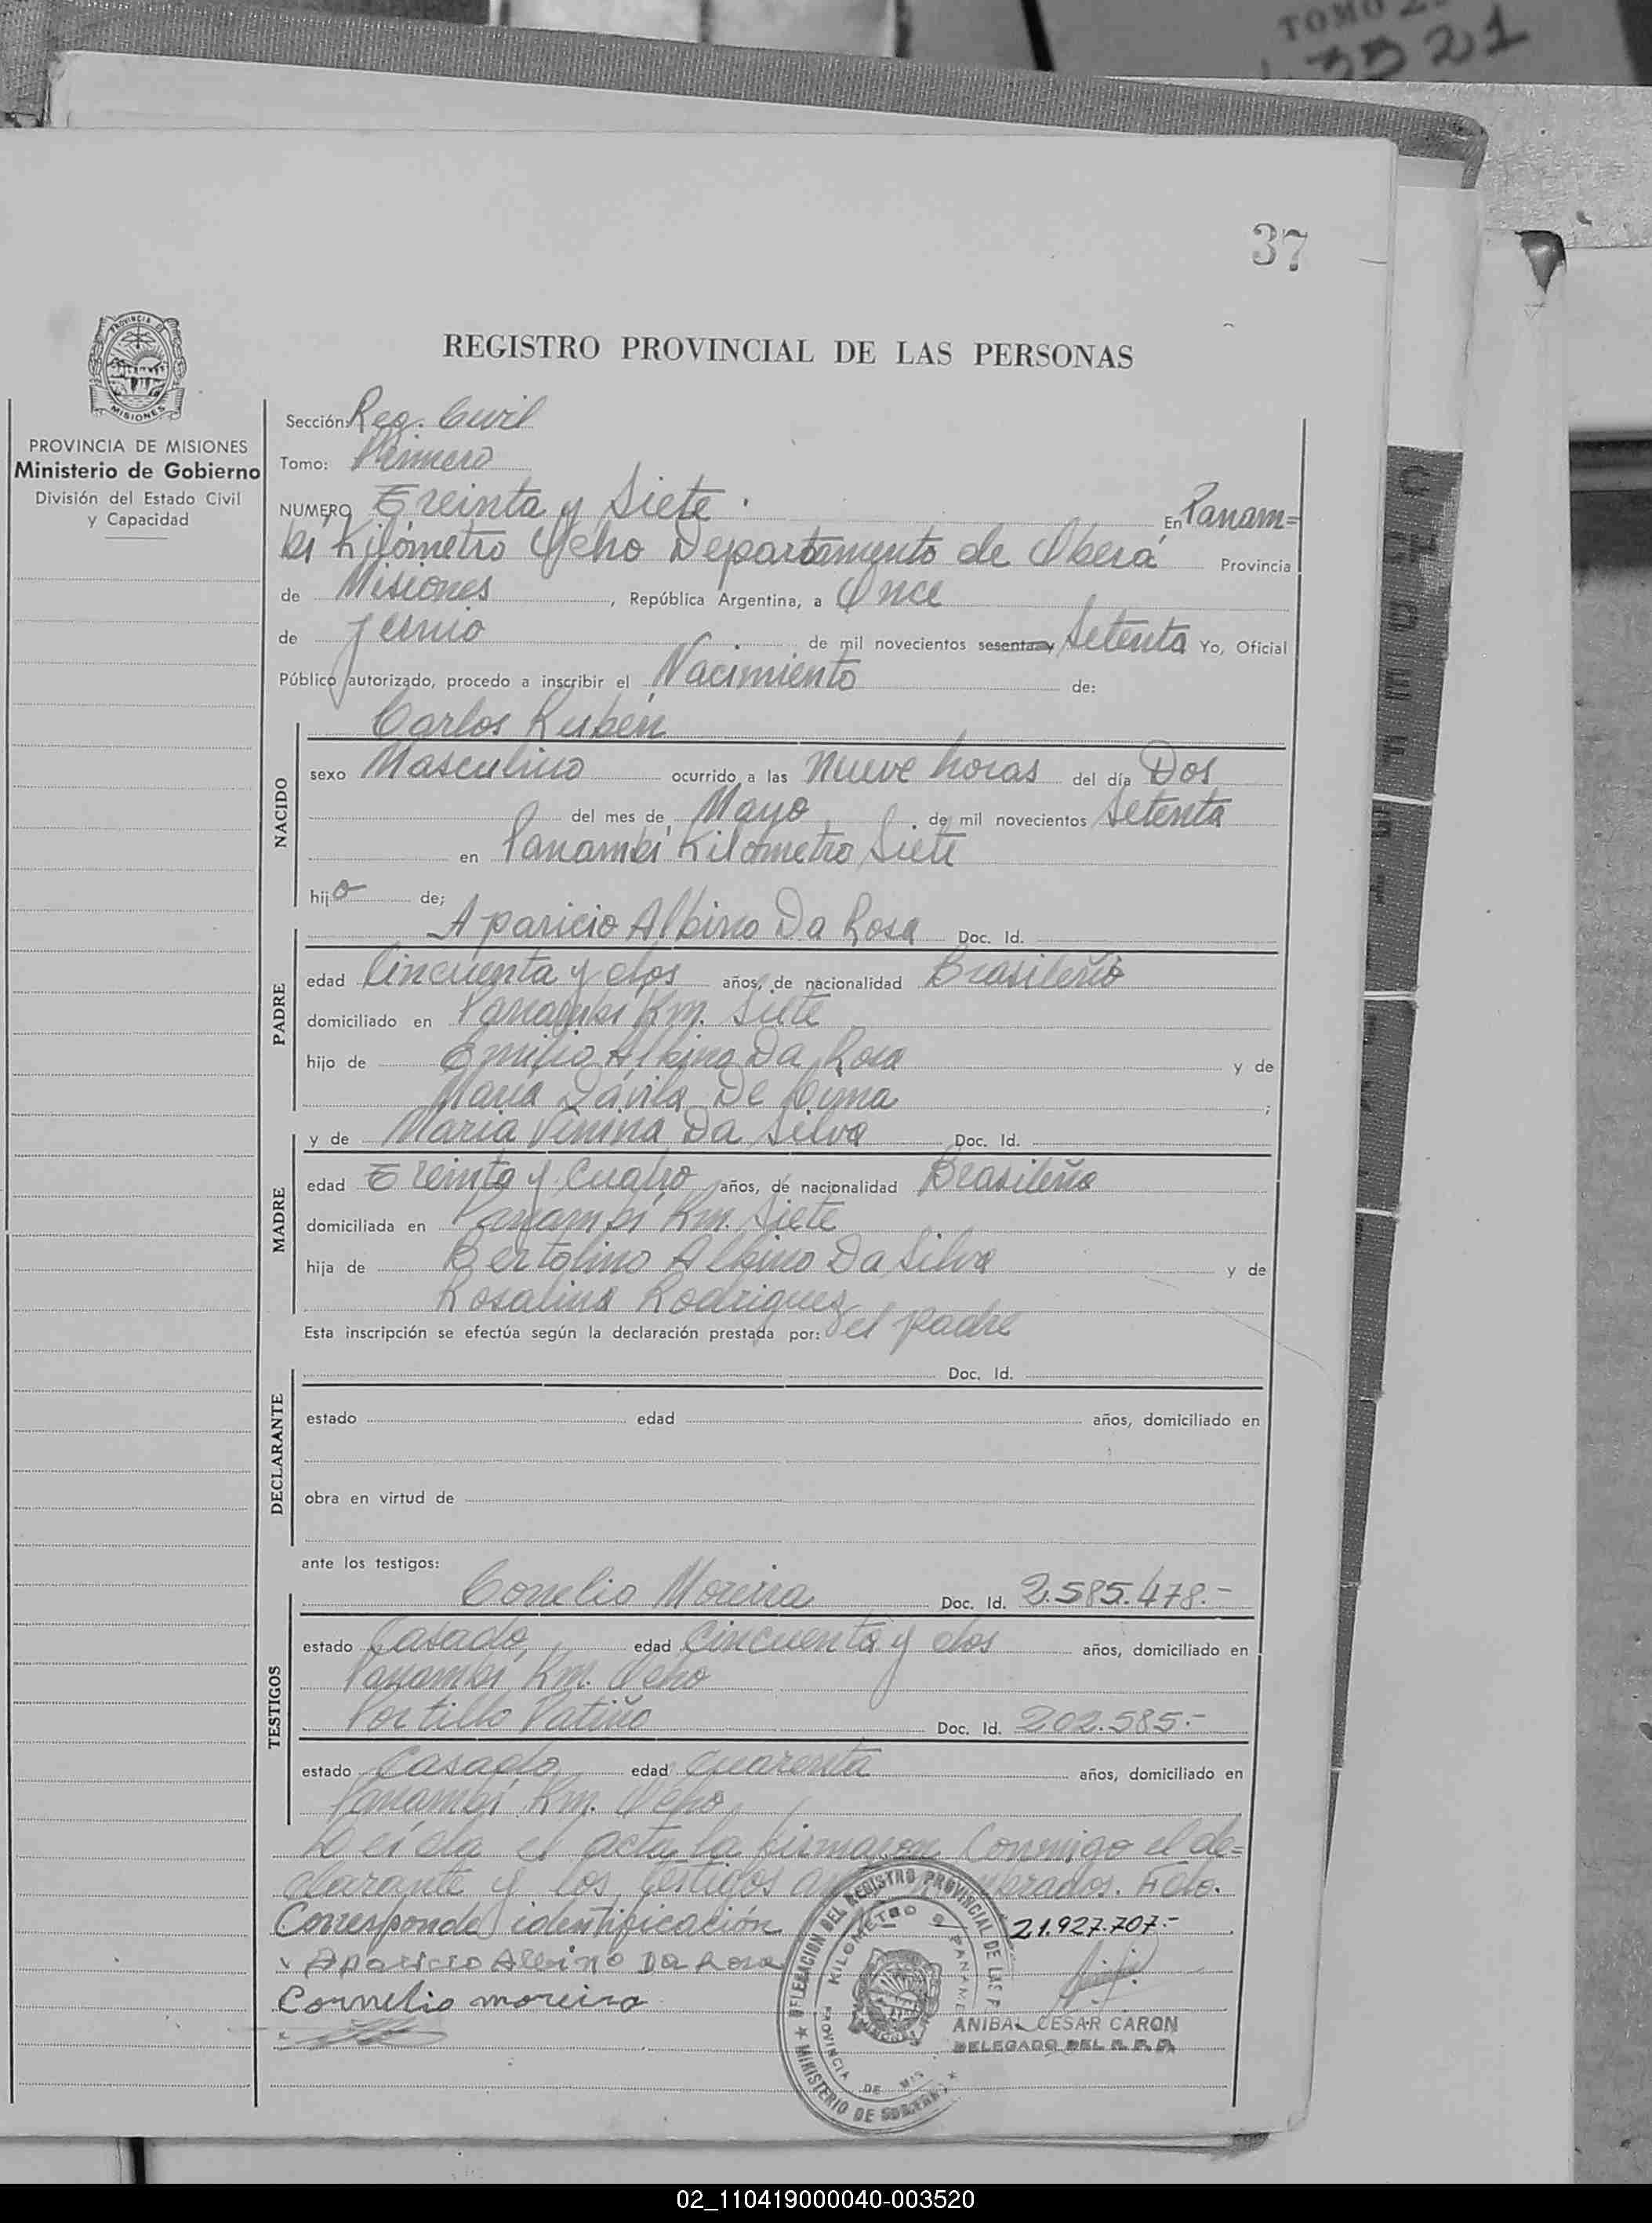 TOMO
3321
37
PROVINCIA DE
MISIONES
PROVINCIA DE MISIONES
Ministerio de Gobierno
División del Estado Civil
y Capacidad
REGISTRO PROVINCIAL DE LAS PERSONAS
Sección: Reg. Civil
Tomo: Primero
NUMERO Treinta y Siete. En Panam=
bi Kilómetro Ocho Departamento de Oberá Provincia
de Misiones, República Argentina, a Once
de junio de mil novecientos sesenta y Setenta Yo, Oficial
Público autorizado, procedo a inscribir el Nacimiento de:
Carlos Rubén
NACIDO
sexo Masculino ocurrido a las nueve horas del día Dos
del mes de Mayo de mil novecientos Setenta
en Panambí Kilómetro Siete
hijo de;
Aparicio Albino Da Rosa Doc. Id.
PADRE
edad Cincuenta y dos años, de nacionalidad Brasileño
domiciliado en Panambí Km. Siete
hijo de Emilio Albino Da Rosa y de
María Dávila De
y de María Da Silva Doc. Id.
MADRE
edad Treinta y Cuatro años, de nacionalidad Brasileña
domiciliada en Panambí Km. Siete
hija de Bertolino Albino Da Silva y de
Rosalina Rodriguez
Esta inscripción se efectúa según la declaración prestada por: el padre
Doc. Id.
DECLARANTE
estado edad años, domiciliado en
obra en virtud de
ante los testigos:
Cornelio Moreira Doc. Id. 2.585.478.-
TESTIGOS
estado Casado, edad Cincuenta y dos años, domiciliado en
Panambí Km. Ocho
Portillo Patiño Doc. Id. 202.585.-
estado Casado edad cuarenta años, domiciliado en
Panambí Km. Ocho
Leída el acta la firmaron Conmigo el de=
clarante y los testigos
Corresponde identificación 21.927.707.-
Aparicio Albino Da Rosa
Cornelio moreira
DELEGACION DEL REGISTRO PROVINCIAL DE LAS P
MINISTERIO DE GOBIERNO
KILOMETRO
PROVINCIA DE MIS
ANIBAL CESAR CARON
DELEGADO DEL R. P. P.
02_110419000040-003520